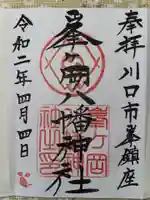 奉拝川口市峯鎮座
峯ヶ岡八幡神社
令和二年四月四日